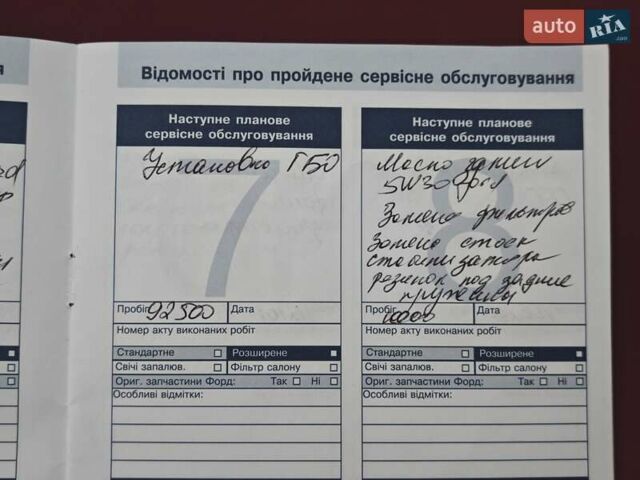 auto RIA .com
Відомості про пройдене сервісне обслуговування
Наступне планове
сервісне обслуговування
Установка ГБО
7
Пробіг 92500 Дата
Номер акту виконаних робіт
Стандартне Розширене
Свічі запалюв. Фільтр салону
Ориг. запчастини Форд: Так Ні
Особливі відмітки:
Наступне планове
сервісне обслуговування
Масло замен
5W30 Ford
Замена фильтров
Замена стоек
стабилизатора
резинок под задние
пружины
8
Пробіг Дата
Номер акту виконаних робіт
Стандартне Розширене
Свічі запалюв. Фільтр салону
Ориг. запчастини Форд: Так Ні
Особливі відмітки: